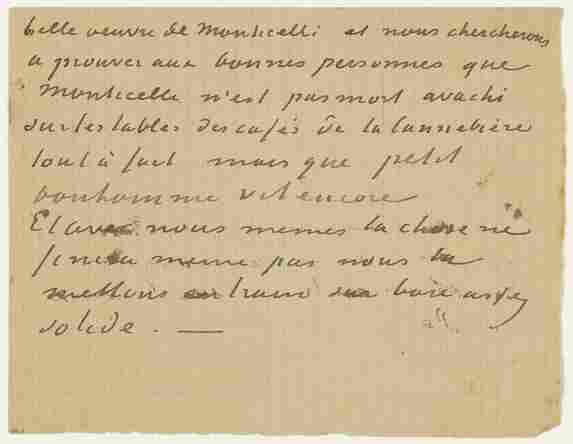 belle œuvre de Monticelli et nous chercherons
a prouver aux bonnes personnes que
Monticelli n'est pas mort avachi
sur les tables des cafés de la Cannebière
tout à fait mais que petit
bonhomme vit encore
Et avec nous memes la chose ne
finira meme pas nous la
mettons en train sur base assez
solide. —